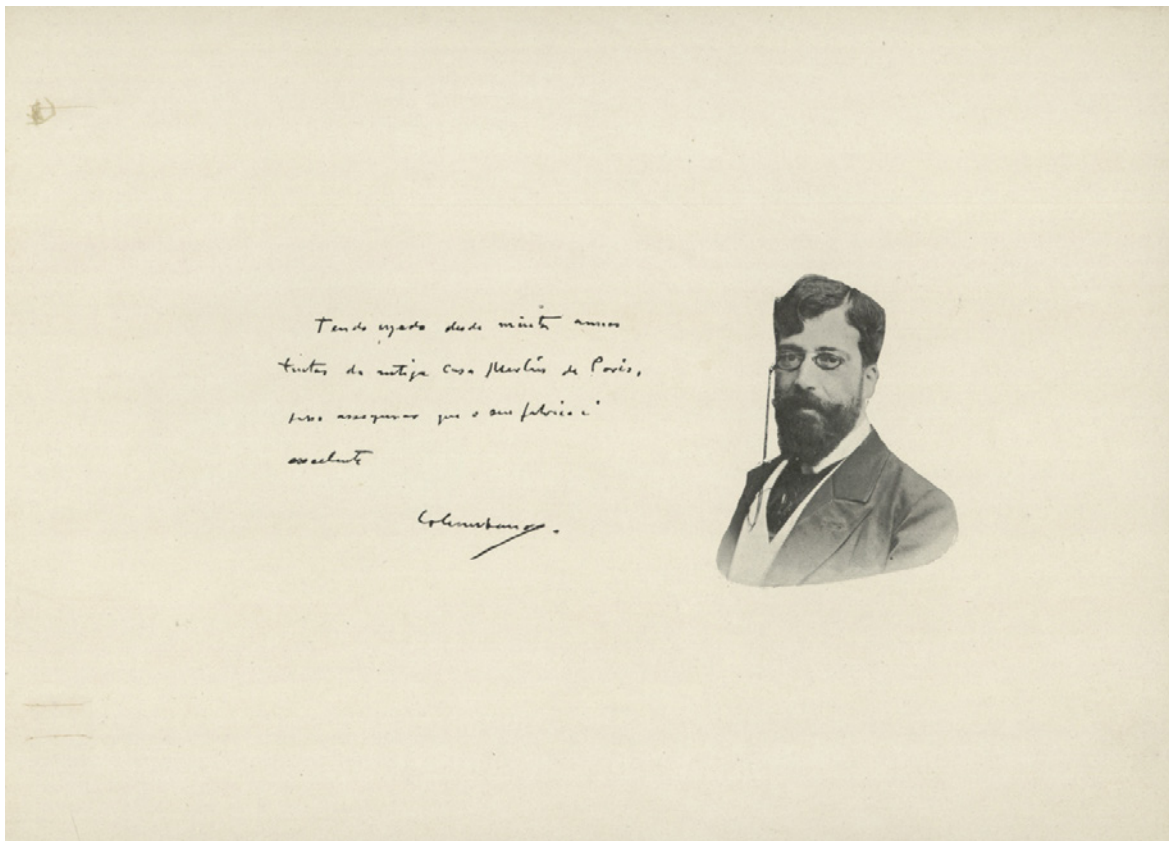 Tendo usado desde muitos annos
tintas da antiga casa Merlin de Paris,
posso assegurar que o seu fabrico é
excellente
Columbano.